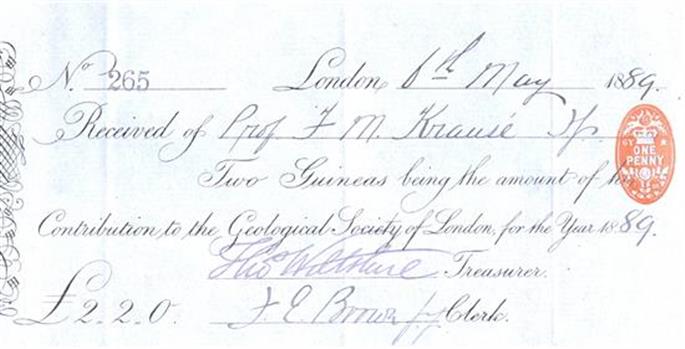 No. 265 London, 6th May 1889.
Received of Prof. F. M. Krausé
Two Guineas being the amount of his
Contribution to the Geological Society of London, for the Year 1889.
Thos Wiltshire Treasurer.
£2.2.0. F. E. Brown Clerk.
ONE
PENNY